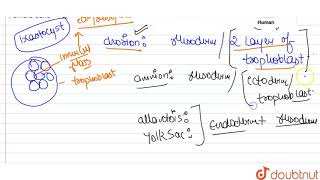 Human
blastocyst
Inner cell mass
trophoblast
chorion : mesoderm / 2 layer of trophoblast
amnion : mesoderm / ectoderm / trophoblast
allantois :
Yolk Sac :
Endoderm + mesoderm
doubtnut